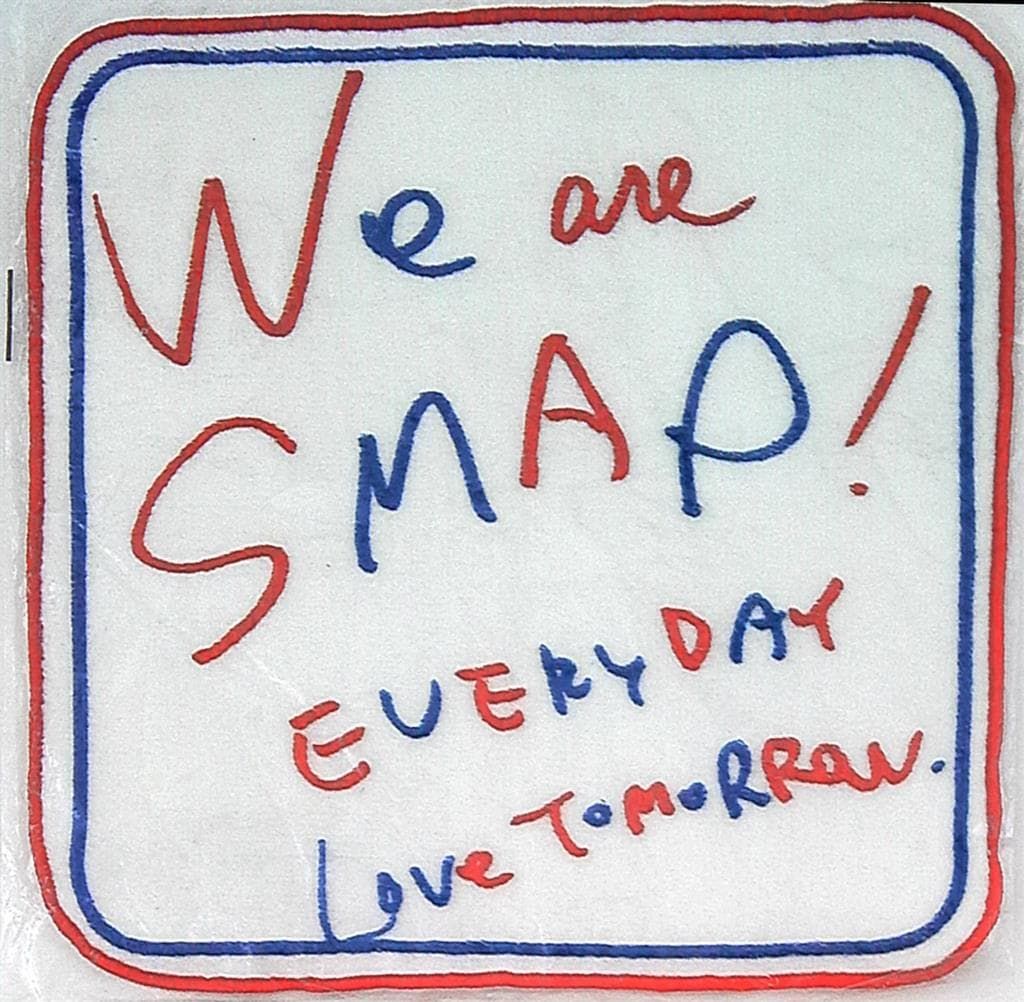 We are
SMAP!
EVERYDAY
Love TOMORROW.